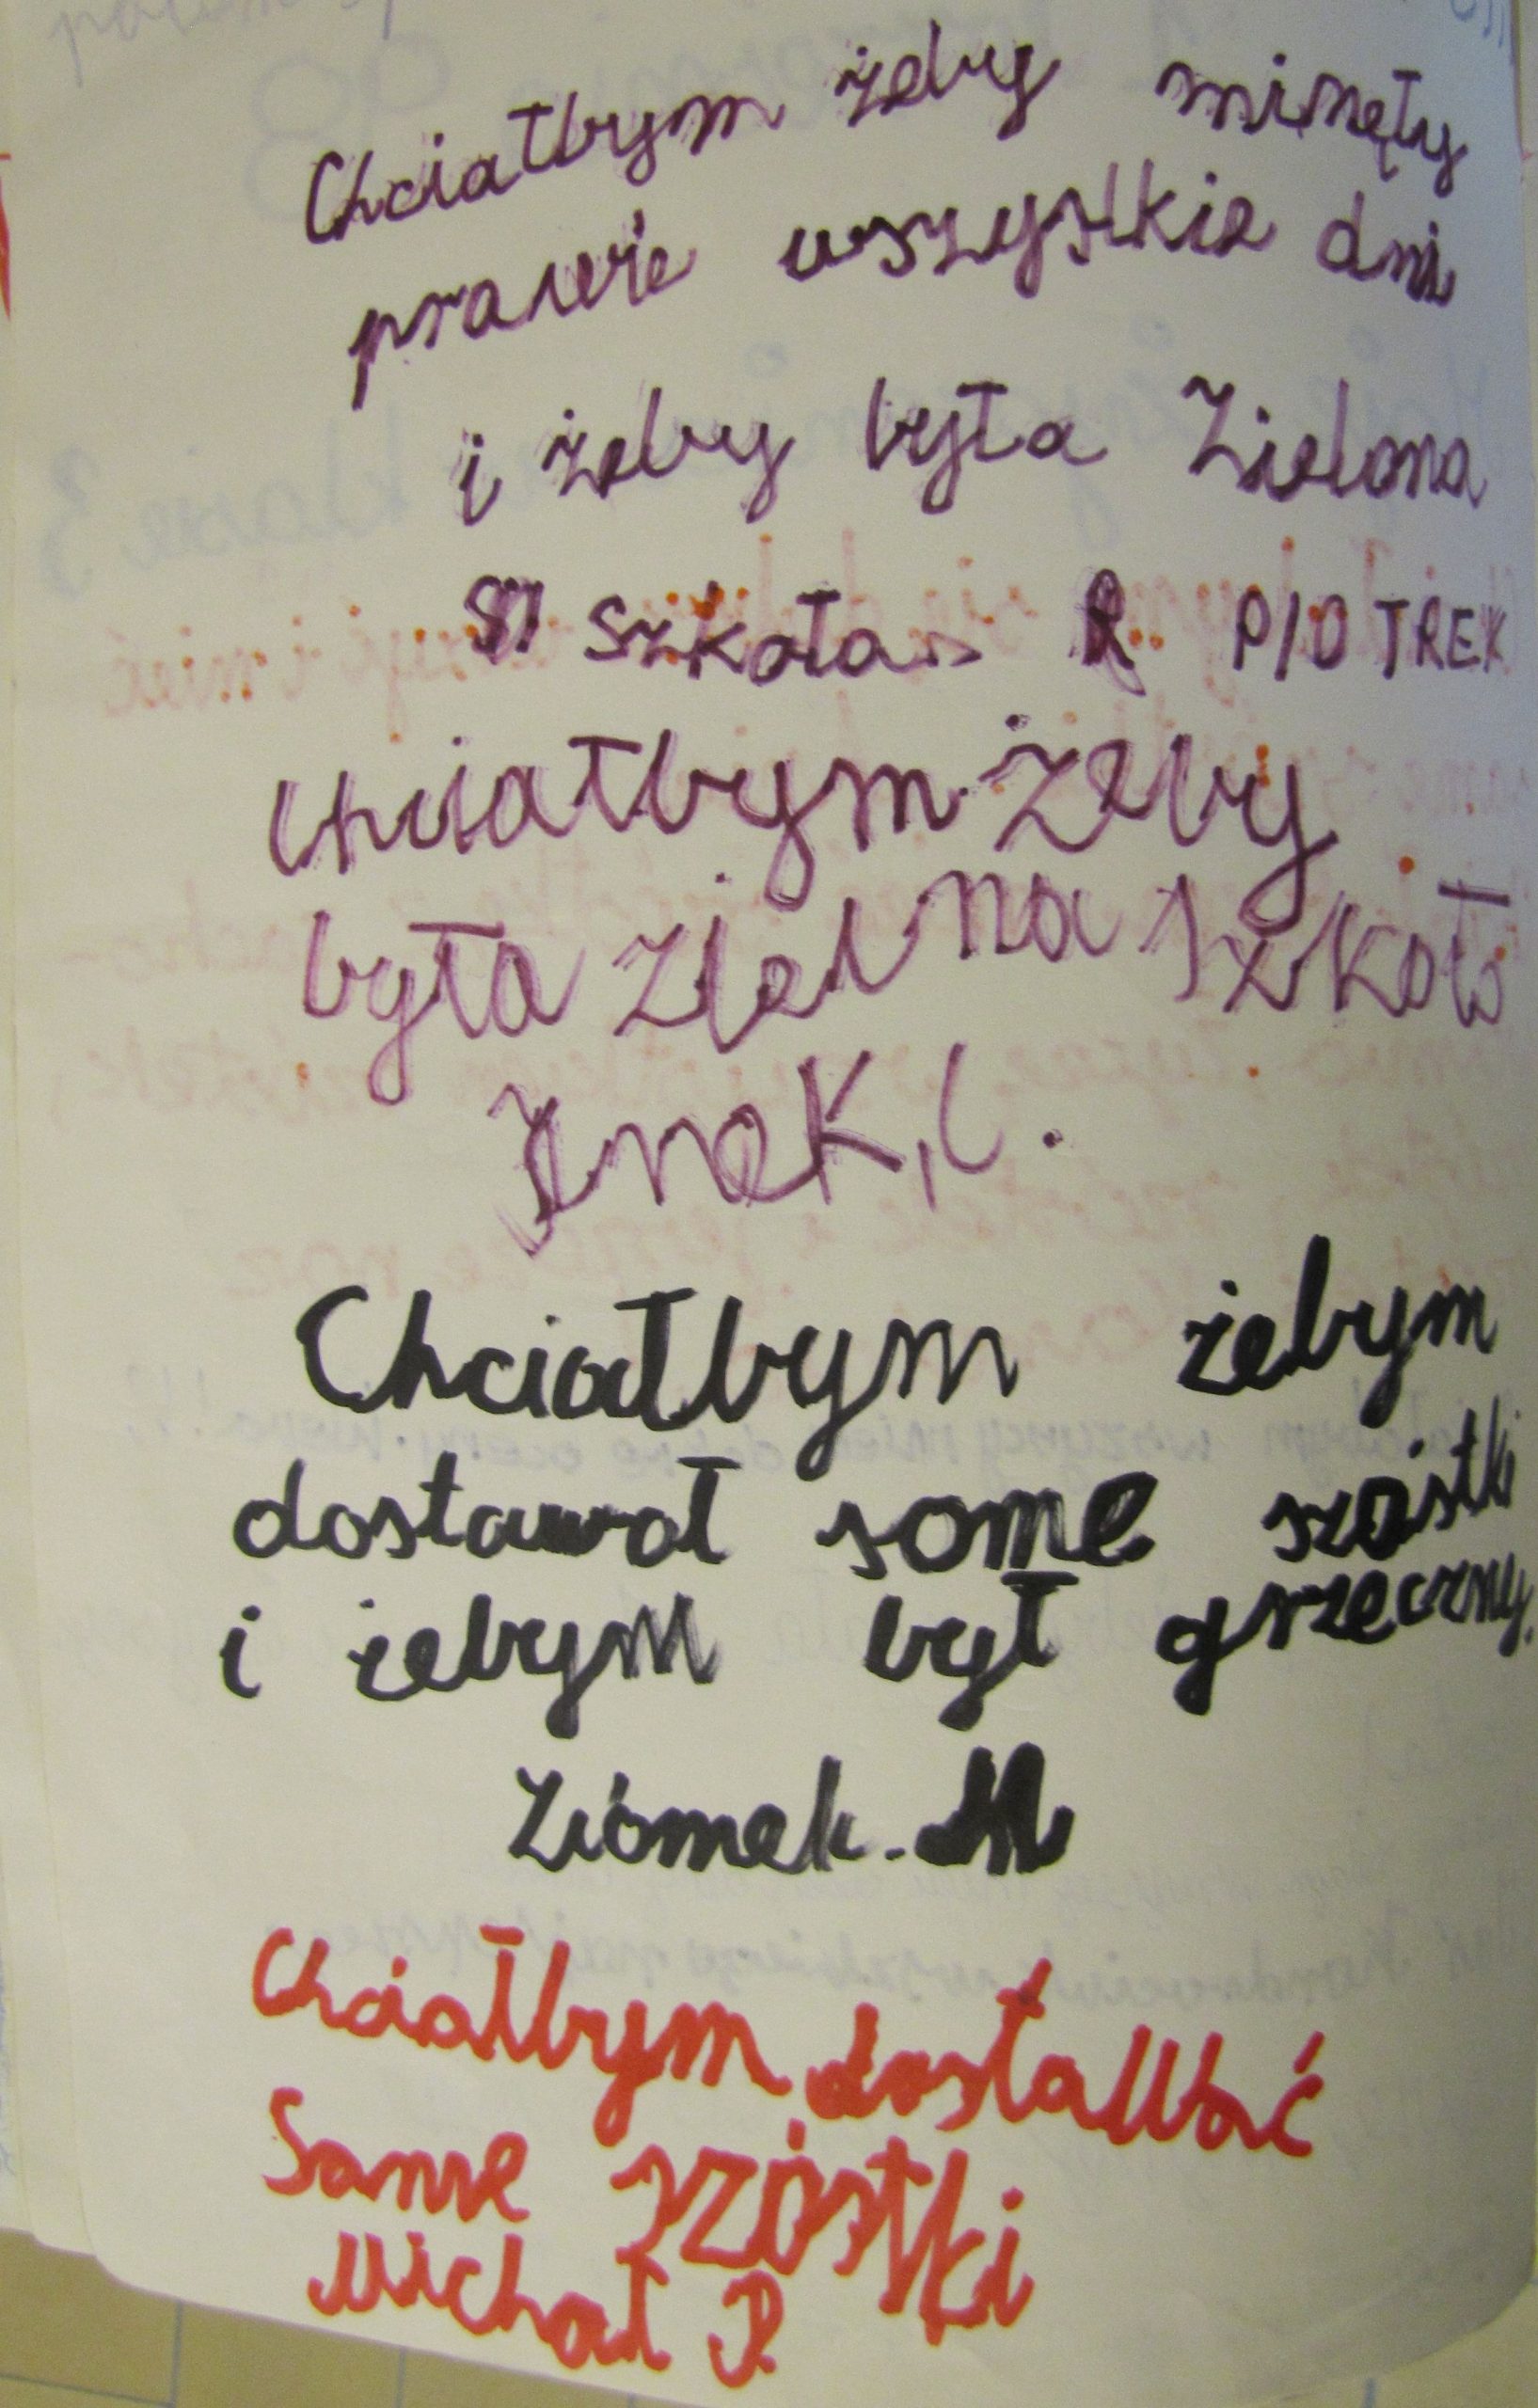 Chciałbym żeby minęły
prawie wszystkie dni
i żeby była Zielona
szkoła R PIOTREK
Chciałbym żeby
była zielona szkoła
Chciałbym żebym
dostawał same szóstki
i żebym był grzeczny.
Ziómek. M
Chciałbym dostawać
Same szóstki
Michał P.